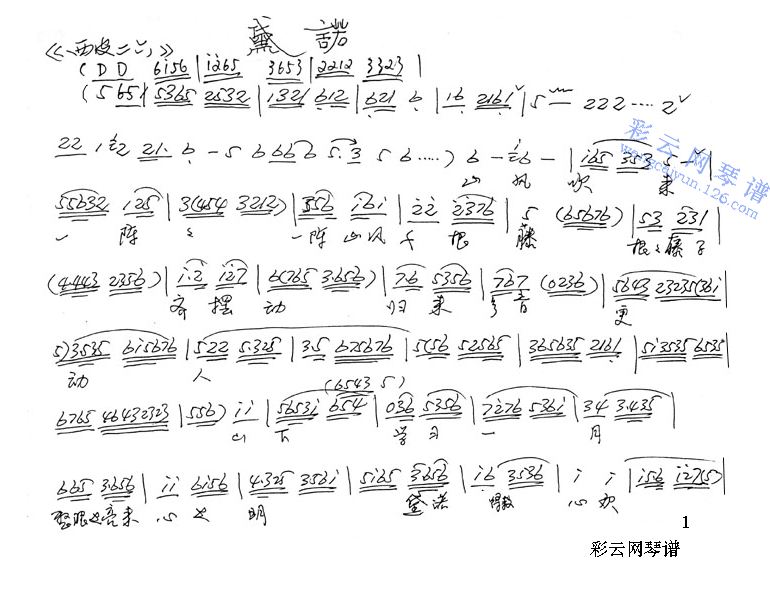 黛 诺
《西皮二六》
( D D 6156 | 1265 3653 | 2212 3323 |
( 5 65 | 5365 2532 | 1321 612 | 621 6 | 16 2161 | 5 222 .... 2
22 1 2 21. 6 - 5 6 666 5.3 5 6 .....) 6 - 6 - | 165 353 5 - |
山 风 吹 来
55632 125 | 3(454 3212) | 356 161 | 22 2376 | 5 (65676) | 53 231 |
一 阵 阵 山风 千 根 藤 根 藤 子
(4.443 2356) | 1.2 127 | 6(765 3.656) | 76 5356 | 767 (0236) | 5643 23235(361 |
齐 摆 动 归 来 音 更
5)3535 615676 | 522 5.325 | 3.5 675676 | 5(56 52565 | 365635 2161 | 513535 6535 |
动 人
(6543 5)
6765 46432323 | 556) 11 | 56531 654 | 036 5356 | 7276 5361 | 34 3.435 |
山 下 学 习 一 月
665 3.656 | 11 6156 | 4.325 3561 | 5165 3656 | 16 3536 | 1 1 | 156 127(5) |
眼 亮来 心 明 黛诺 心 欢
彩云网琴谱
www.gcaiyun.126.com
1
彩云网琴谱